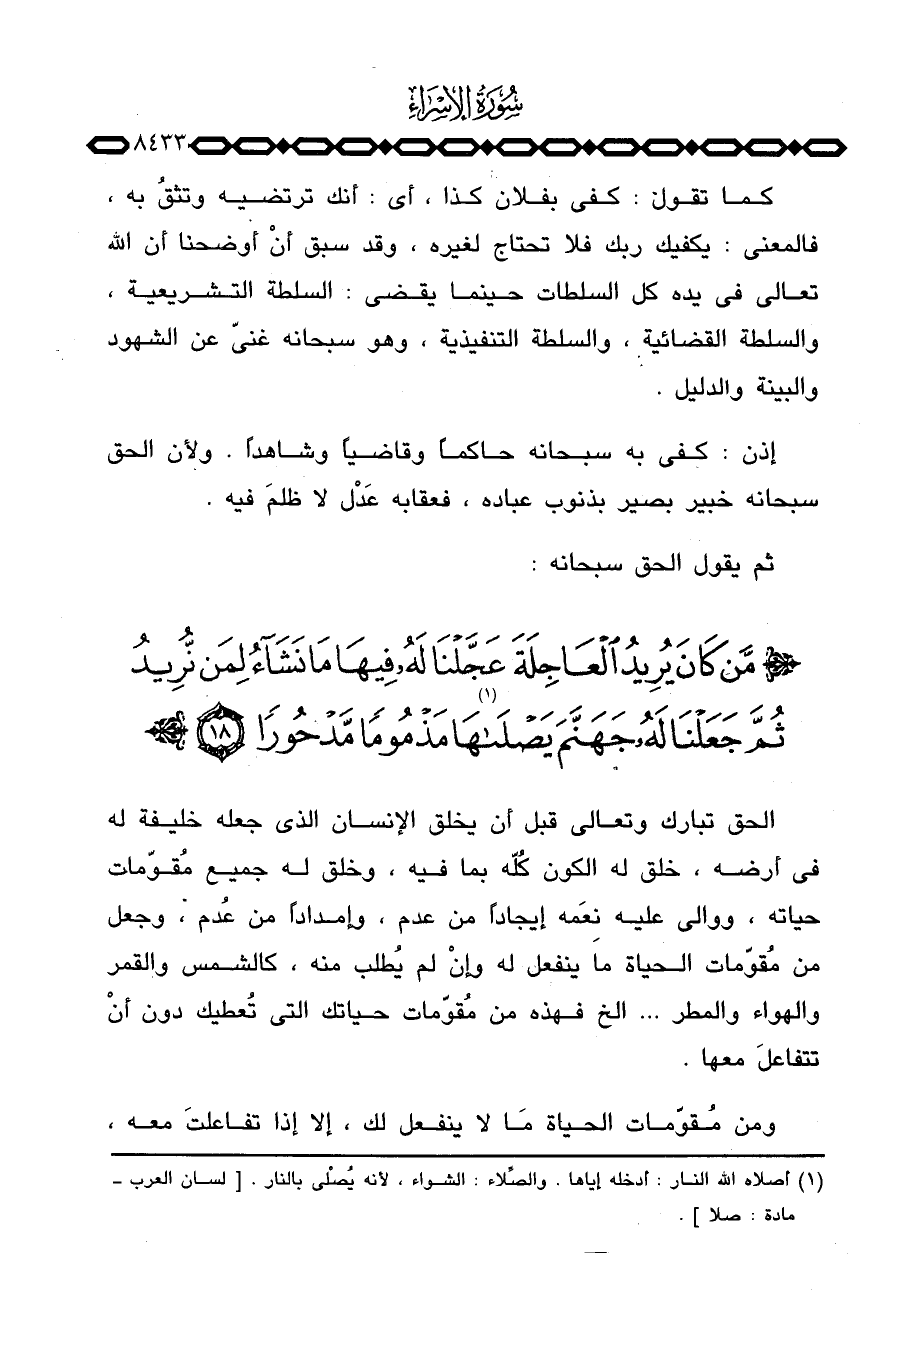 سُورَةُ الإِسْرَاءِ
٨٤٣٣
كـمـا تقـول : كـفى بفـلان كـذا ، أى : أنك ترتضـيـه وتثقُ به ،
فالمعنى : يكفيك ربك فلا تحتاج لغيره ، وقد سبق أنْ أوضحنا أن الله
تعـالى فى يده كل السلطات حـينمـا يقـضى : السلطة التـشـريعيـة ،
والسلطة القضائية ، والسلطة التنفيذية ، وهو سبحانه غنىّ عن الشهود
والبينة والدليل .
إذن : كـفى به سبـحانه حـاكمـاً وقـاضـياً وشـاهداً . ولأن الحق
سبحانه خبير بصير بذنوب عباده ، فعقابه عَدْل لا ظلمَ فيه .
ثم يقول الحق سبحانه :
﴿ مَّن كَانَ يُرِيدُ ٱلْعَاجِلَةَ عَجَّلْنَا لَهُۥ فِيهَا مَا نَشَآءُ لِمَن نُّرِيدُ
ثُمَّ جَعَلْنَا لَهُۥ جَهَنَّمَ يَصْلَىٰهَا (١) مَذْمُومًا مَّدْحُورًا ١٨ ﴾
الحق تبارك وتعـالى قبل أن يخلق الإنسـان الذى جعله خليفة له
فى أرضـه ، خلق له الكون كُلّه بما فـيه ، وخلق لـه جميـع مُقـوّمات
حياته ، ووالى عليـه نعَمه إيجاداً من عدم ، وإمـداداً من عُدم ، وجعل
من مُقوّمات الـحياة ما ينفعل له وإنْ لم يُطلب منه ، كالشـمس والقمر
والهواء والمطر ... الخ فـهذه من مُقوّمات حيـاتك التى تُعطيك دون أنْ
تتفاعلَ معها .
ومن مُـقوّمـات الحياة مَا لا ينفـعل لك ، إلا إذا تفـاعلتَ معـه ،
(١) أصلاه الله النـار : أدخله إياها . والصِّلاء : الشـواء ، لأنه يُصْلَى بالنار . [ لسـان العرب -
مادة : صلا ] .